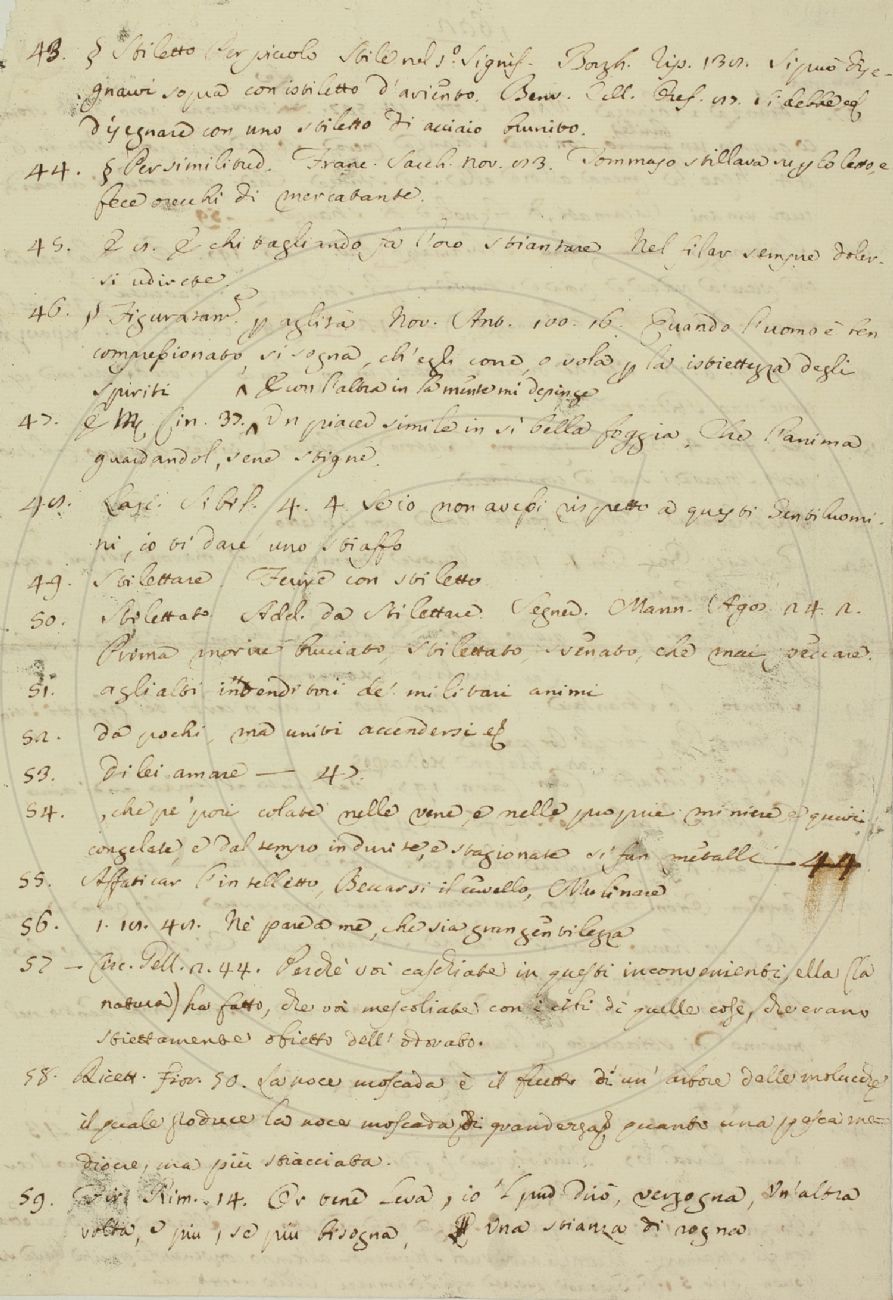 43. § Stiletto Per piccolo Stile nel 1.° signif. Borgh. Rip. 138. si può dise-
gnarvi sopra con istiletto d'ariento. Benv. Cell. Oref. 82. si debbe
disegnare con uno stiletto di acciaio brunito.
44. § Per similitud. Franc. Sacch. nov. 83. Tommaso stillava, e
fece orecchi di mercatante.
45. E 8. E chi tagliando fa l'oro stiantare Nel filar sempre doler-
si udirete.
46. Figuratam.e p agilità Nov. Ant. 100. 16. Quando l'uomo è ben
compressionato, si sogna, ch'egli corre, o vola p la istiettezza degli
spiriti E con l'altra in la mente mi depinge
47. E M Cin. 37. Un piacer simile in si bella foggia, Che l'anima
guardandol, sene stigne.
48. Lasc. Sibil. 4. 4. Se io non avessi rispetto a questi Gentiluomi-
ni, io ti dare' uno stiaffo
49. Stilettare. Ferire con stiletto
50. Stilettato. Add. da Stilettare. Segner. Mann. Ag. 24. 2.
Prima morire bruciato, stilettato, svenato, che mai peccare.
51. agli alti intenditori de' militari animi
52. da pochi, ma uniti accendersi
53. di lei amare — 47.
54. , che pe' pori colate nelle vene, e nelle proprie miniere e quivi
congelate, e dal tempo indurite, e stagionate si fan metalli — 44
55. Affaticar l'intelletto, Beccarsi il cervello, Mulinare
56. 1. 18. 48. Nè pare a me, che sia gran gentilezza
57 — Circ. Gell. 2. 44. Perchè voi caschiate in questi inconvenienti, ella (la
natura) ha fatto, che voi mescoliate con i cibi di quelle cose, che erano
stiettamente obietto dell'odorato.
58. Ricett. Fior. 50. La noce moscada è il frutto di un'arbore delle molucche
il quale produce la noce moscada di grandezza quanto una pesca me-
diocre, ma più stiacciata.
59. Rim. 14. Or tene leva, io 'l pur dirò, vergogna, Un'altra
volta, e più, se più bisogna, Una stianza di rogna